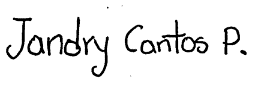 Jandry Cantos P.